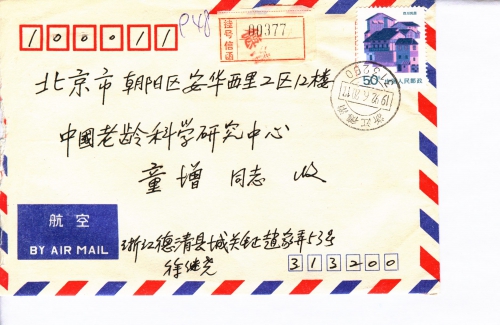 100011
P48
挂号信函
00377
50
中国人民邮政
北京市朝阳区安华西里工区12楼
中國老龄科学研究中心
童增 同志 收
航空
BY AIR MAIL
浙江德清县城关镇趙家弄53号
徐继尧
313200